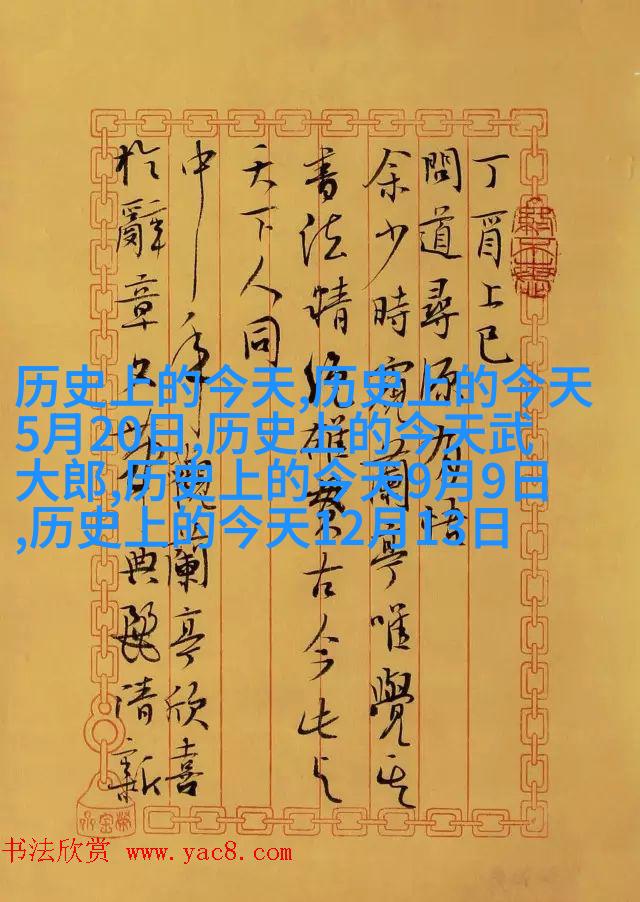 丁酉上巳
問道尋源
余少時蘭亭唯覺其
書法精絶雄古今此与
天下人同
中年觀蘭亭欣喜
於辭章典麗清新
历史上的今天,历史上的今天
5月20日,历史上的今天武
大郎,历史上的今天9月9日
,历史上的今天12月13日
书法欣赏 www.yac8.com